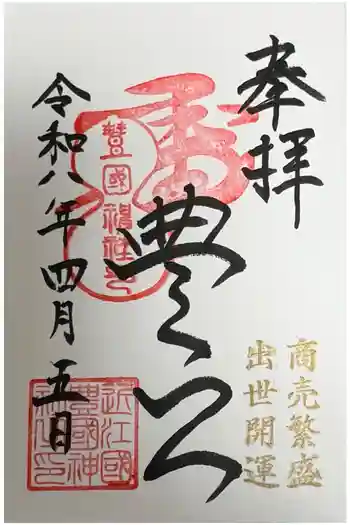 奉拝
商売繁盛
出世開運
豊公
豐國神社印
令和八年四月五日
近江國
豊國神
社之印